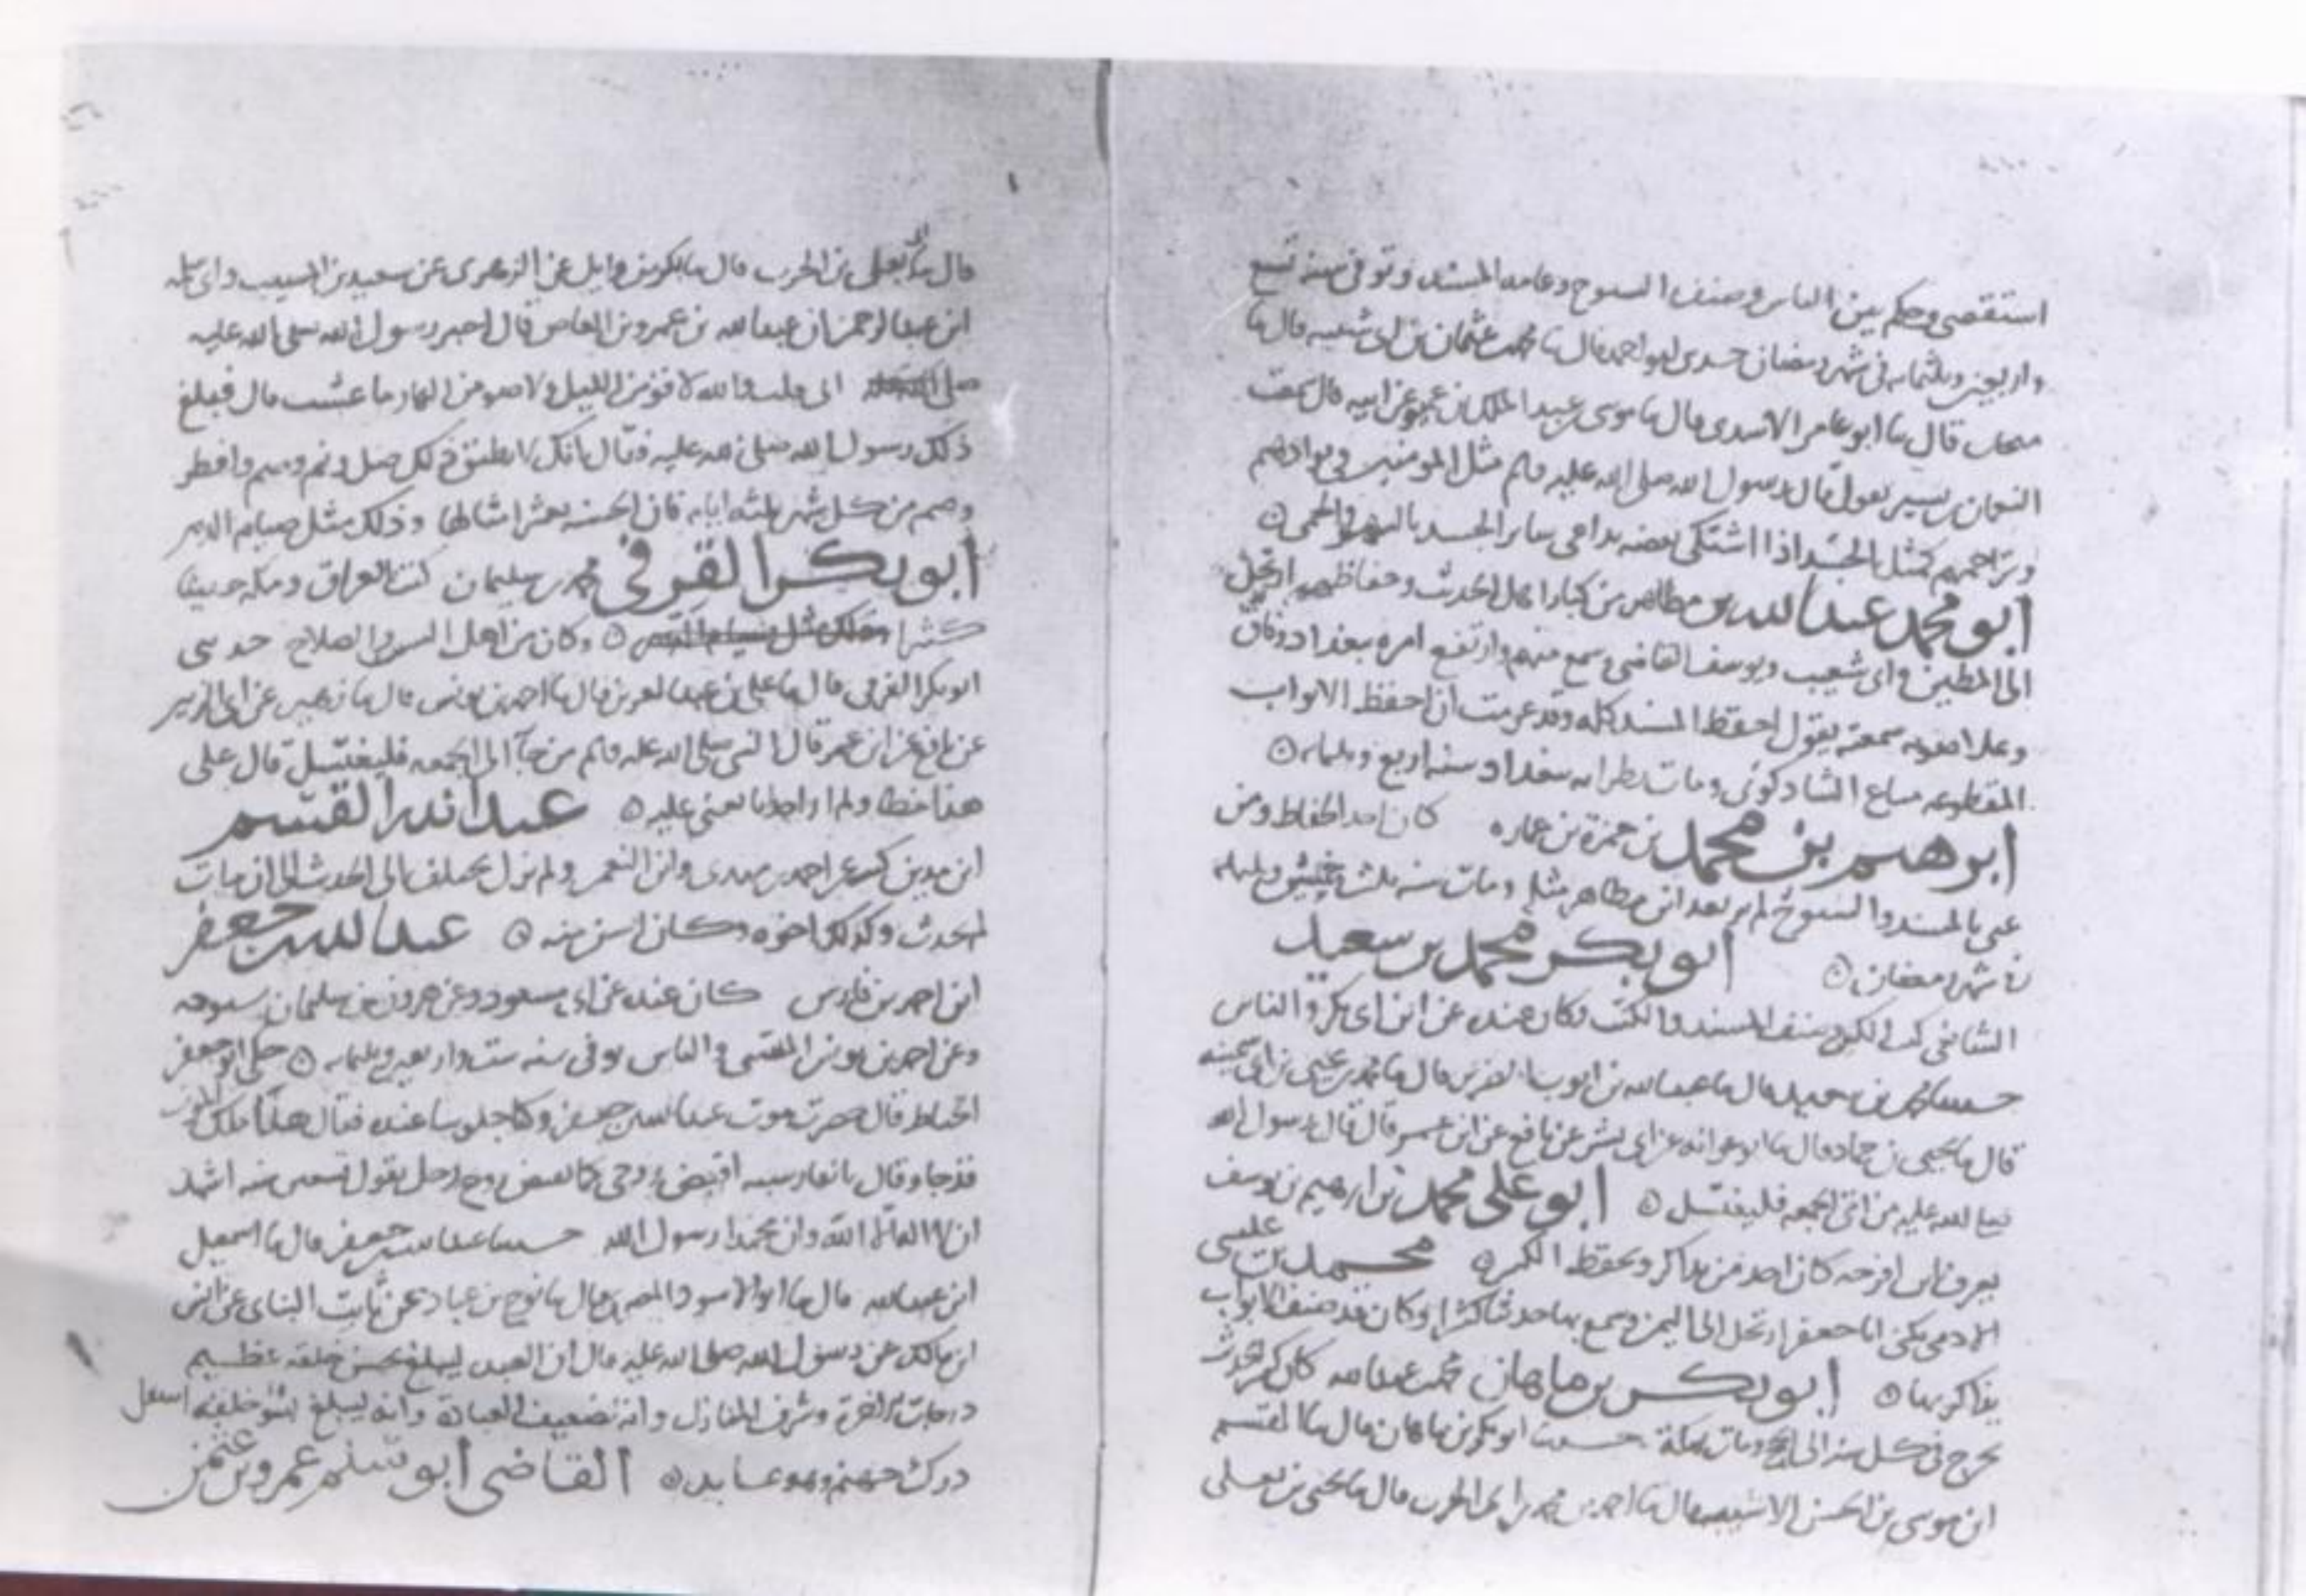 استقصى وحكم بين الناس وصنف الشيوخ وعامة المسند وتوفى سنه تسع
واربعين وثلثمايه فى شهر رمضان حدثنى ابو احمد قال ثنا محمد بن عثمان بن ابى شيبه قال ثنا
منجاب قال ثنا ابو عامر الاسدى قال ثنا موسى بن عبد الملك بن عمير عن ابيه قال سمعت
النعمان بن بشير يقول قال رسول الله صلى الله عليه وسلم مثل المومنين فى توادهم
وتراحمهم كمثل الجسد اذا اشتكى بعضه تداعى ساير الجسد بالسهر والحمى
ابو محمد عبد الله بن مظاهر من كبار اهل الحديث وحفاظهم ارتحل
الى المطين وابى شعيب ويوسف القاضى وسمع منهم وارتفع امره ببغداد وفاق
سمعته يقول احفظ المسند كله وقد عزمت ان احفظ الابواب
المقطوعه الشاذكونى ومات ببغداد سنه اربع وثلثمايه
ابرهيم بن محمد بن حمزة بن عماره كان احد الحفاظ ومن
عنى بالمسند والشيوخ لم ير بعد ابن مظاهر مثله ومات سنه ثلث وخمسين وثلثمايه
فى شهر رمضان ابو بكر محمد بن سعيد
الشافعى كتب الكثير وصنف المسند والكتب وكان عنده عن ابن ابى بكر والناس
حدثنا محمد بن سعيد قال ثنا عبد الله بن ايوب قال ثنا محمد بن يحيى بن ابى سمينه
قال ثنا يحيى بن حماد قال ثنا ابو عوانه عن ابى بشر عن نافع عن ابن عمر قال قال رسول الله
صلى الله عليه من اتى الجمعه فليغتسل ابو على محمد بن ابرهيم بن يوسف
يعرف بابن افرجه كان احد من يذاكر ويحفظ الكثير محمد بن عيسى
الادمى يكنى ابا جعفر ارتحل الى اليمن وسمع بها حديثا كثيرا وكان قد صنف الابواب
يذاكر بها ابو بكر بن ماهان محمد بن عبد الله كان كثير الحديث
يخرج فى كل سنه الى الحج ومات بمكة حدثنا ابو بكر بن ماهان قال ثنا القسم
ابن موسى بن الحسن الاشيب قال ثنا احمد بن محمد بن ابى الحرب قال ثنا يحيى بن يعلى
قال ثنا ابى يعلى بن الحرب قال ثنا بكر بن وايل عن الزهرى عن سعيد بن المسيب وابى سلمه
ابن عبد الرحمن ان عبد الله بن عمرو بن العاص قال اخبر رسول الله صلى الله عليه
انى قلت والله لاقومن الليل ولاصومن النهار ما عشت قال فبلغ
ذلك رسول الله صلى الله عليه فقال انك لا تطيق ذلك صل ونم وصم وافطر
وصم من كل شهر ثلثه ايام فان الحسنه بعشر امثالها وذلك مثل صيام الدهر
ابو بكر القرفى محمد بن سليمان كتب العراق ومكه حديثا
كثيرا وكان من اهل الستر والصلاح حدثنى
ابو بكر القرفى قال ثنا على بن عبد العزيز قال ثنا احمد بن يونس قال ثنا زهير عن ابى الزبير
عن نافع عن ابن عمر قال النبى صلى الله عليه وسلم من جآ الى الجمعه فليغتسل قال على
هذا خطا ولم ار احدا تابعنى عليه عبد الله بن القسم
احمد بن مهدى وابن النعمن ولم يزل يختلف الى الحديث الى ان مات
الحدث وكذلك اخوه وكان اسن منه عبد الله بن جعفر
ابن احمد بن فارس كان عنده عن ابى مسعود وعن هرون بن سليمان وسمويه
وعن احمد بن يونس الضبى والناس توفى سنه ست واربعين وثلثمايه حكى ابو جعفر
الخياط قال حضرت موت عبد الله بن جعفر وكنا جلوسا عنده فقال هذا ملك الموت
قد جا وقال بالفارسيه اقبض روحى كما تقبض روح رجل يقول تسعين سنه اشهد
ان لا اله الا الله وان محمدا رسول الله حدثنا عبد الله بن جعفر قال ثنا اسمعيل
ابن عبد الله قال ثنا ابو الاسود المصرى قال ثنا نوح بن عباد عن ثابت البنانى عن انس
ابن مالك عن رسول الله صلى الله عليه قال ان العبد ليبلغ بحسن خلقه عظيم
درجات الاخرة وشرف المنازل وانه لضعيف العبادة وانه ليبلغ بسو خلقه اسفل
درك جهنم وهو عابد القاضى ابو سلم عمرو بن عثمن